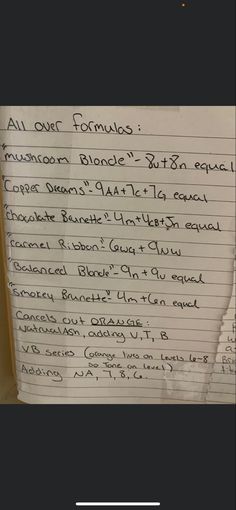 All over formulas:
"mushroom Blonde" - 8v+8n equal
"Copper Dreams" - 9AA+7c+7G equal
"chocolate Brunette" - 4m+4cB+5n equal
"caramel Ribbon" - 6wg+9NW
"Balanced Blonde" - 9n+9v equal
"Smokey Brunette" - 4m+6n equal
Cancels out ORANGE:
Natural Ash, adding V, T, B
VB series (orange lives on levels 6-8
do Tone on level)
Adding NA, 7, 8, 6.